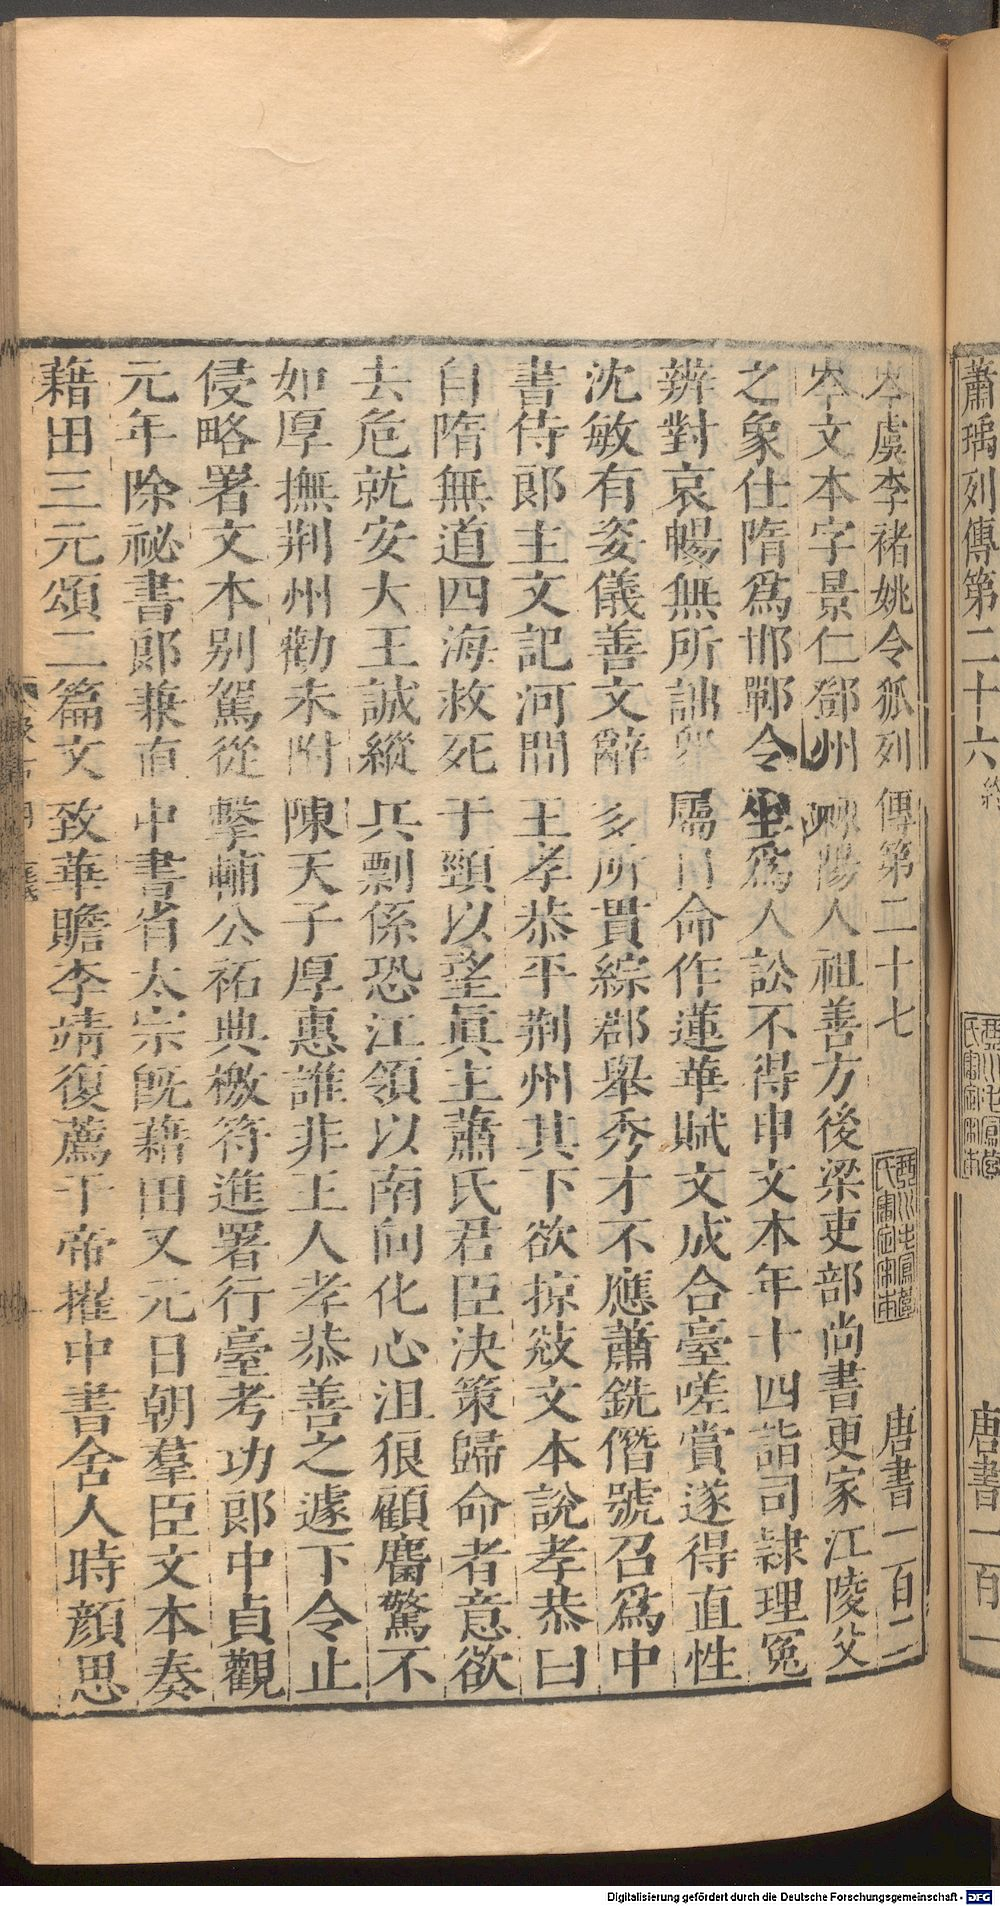 蕭瑀列傳第二十六 終 唐書一百一
岑虞李褚姚令狐列傳第二十七 唐書一百二
岑文本字景仁鄧州棘陽人祖善方後梁吏部尚書更家江陵父
之象仕隋爲邯鄲令坐爲人訟不得申文本年十四詣司隸理冤
辨對哀暢無所詘眾屬目命作蓮華賦文成合臺嗟賞遂得直性
沈敏有姿儀善文辭多所貫綜郡舉秀才不應蕭銑僭號召爲中
書侍郎主文記河間王孝恭平荆州其下欲掠敓文本說孝恭曰
自隋無道四海救死于頸以望眞主蕭氏君臣決策歸命者意欲
去危就安大王誠縱兵剽係恐江領以南向化心沮狼顧麕驚不
如厚撫荆州勸未附陳天子厚惠誰非王人孝恭善之遽下令止
侵略署文本别駕從擊輔公祏典檄符進署行臺考功郎中貞觀
元年除祕書郎兼直中書省太宗旣藉田又元日朝羣臣文本奏
藉田三元頌二篇文致華贍李靖復薦于帝擢中書舍人時顔思
Digitalisierung gefördert durch die Deutsche Forschungsgemeinschaft - DFG